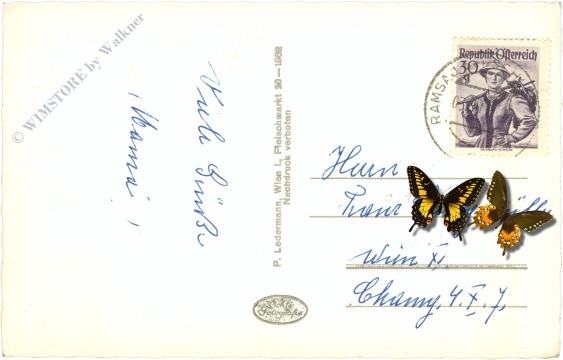 © WIMSTORE by Walkner
Viele Grüße
Mama!
P. Ledermann, Wien I., Fleischmarkt 20-1962
Nachdruck verboten
Echte
Fotografie
Republik Österreich
30
g
RAMSAU
Herrn
Franz
Wien X,